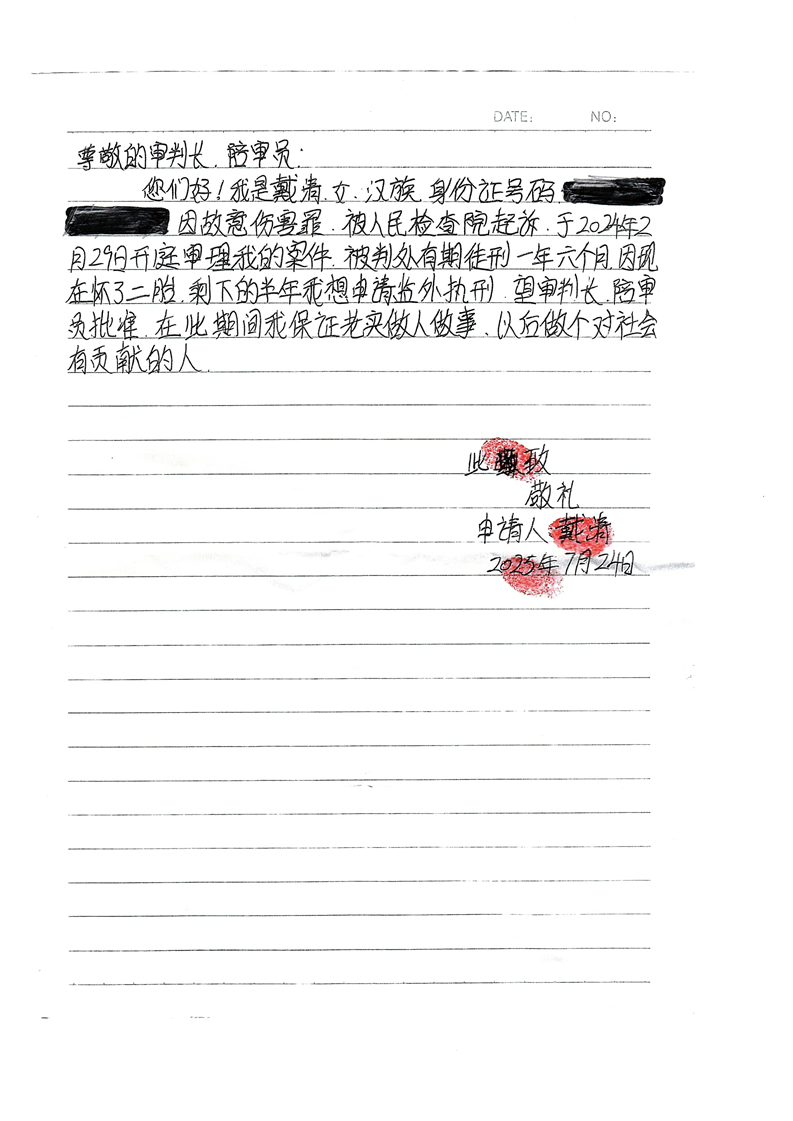 DATE: NO:
尊敬的审判长、陪审员:
您们好!我是戴清、女、汉族、身份证号码
因故意伤害罪、被人民检查院起诉、于2024年2
月29日开庭审理我的案件、被判处有期徒刑一年六个月、因现
在怀了二胎、剩下的半年我想申请监外执刑、望审判长、陪审
员批准、在此期间我保证老实做人做事、以后做个对社会
有贡献的人、
此致
敬礼
申请人:戴清
2025年7月24日